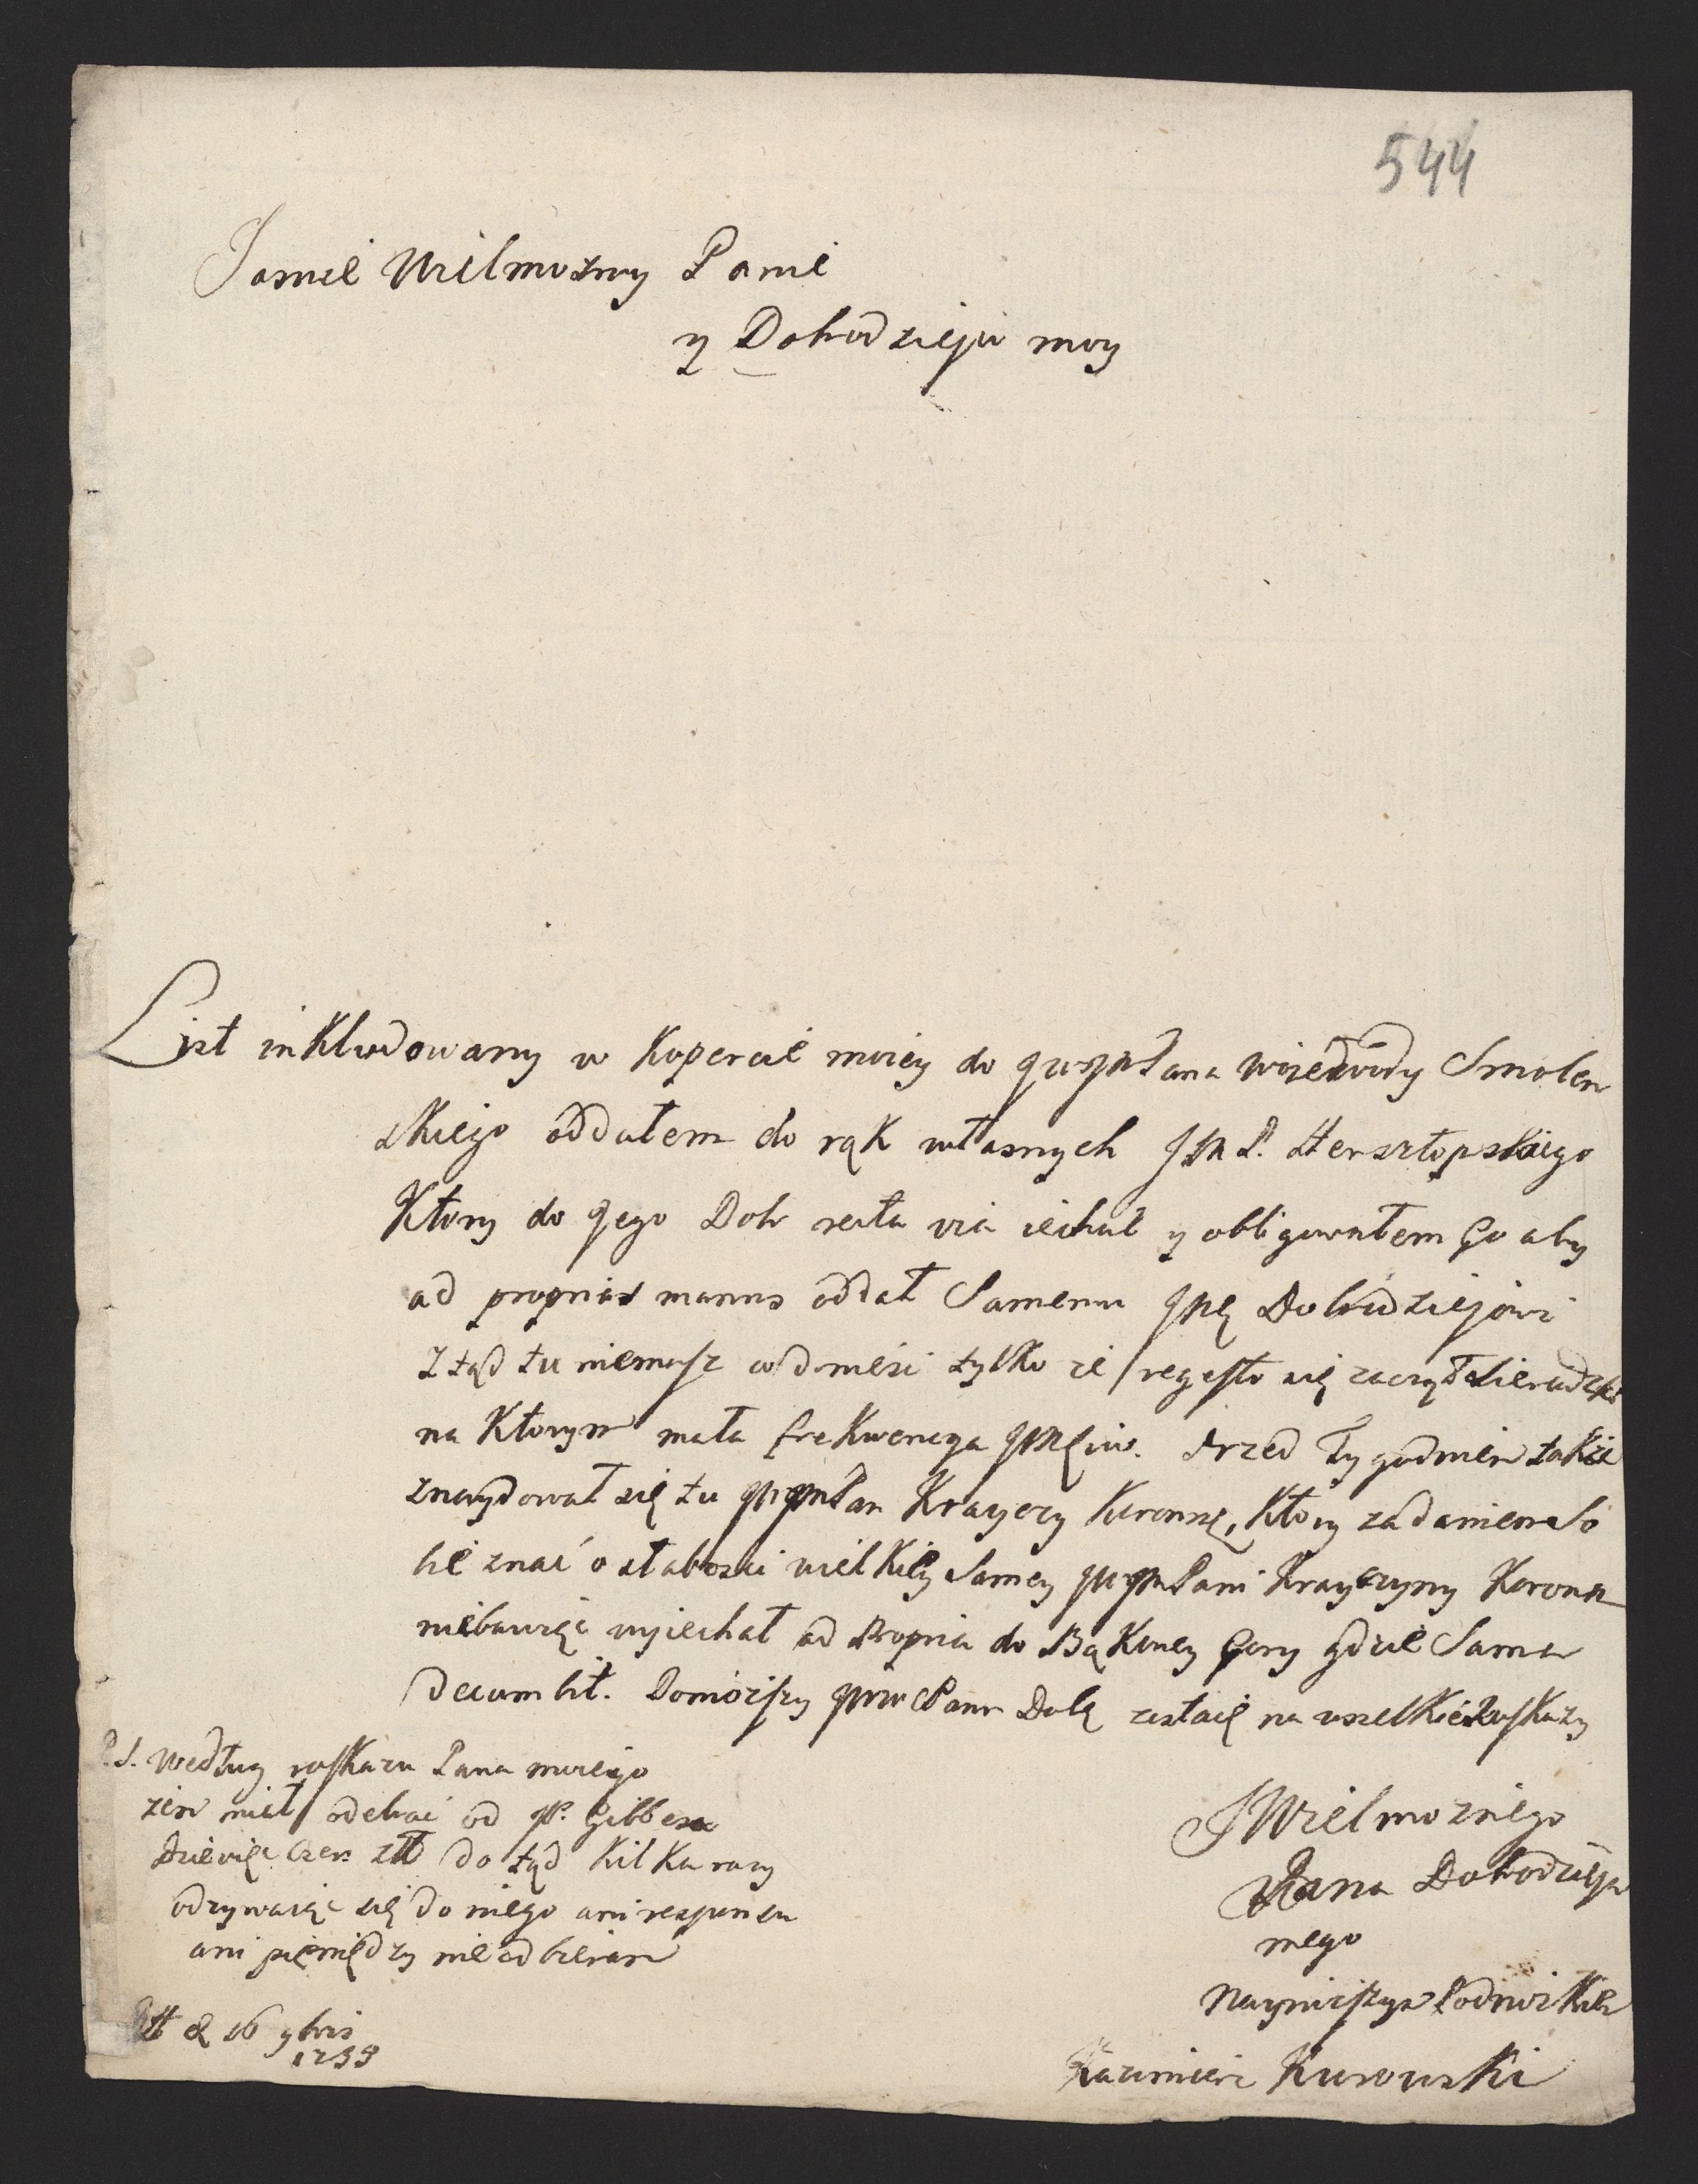 544
Jasnie Wielmozny Panie
y Dobrodzieju moy
List inkludowany w kopercie moiey do JWJM Pana Woiewody Smolen
skiego oddałem do rąk własnych JM P. Hersztopskiego
Ktory do Jego Dobr recta via iechał y obligowałem Go aby
ad proprias manus oddał Samemu JMę Dobrodziejowi
Ztąd tu niemasz co donieść tylko ze się zaczął Sieradzki
na Ktorym mała frekwencya JMściow. Przed Tygodniem także
znaydował się tu JWJM Pan Krayczy Koronny, Ktory za daniem So
bie znać o słabości wielkiey Samey JWJM Pani Krayczyny Koronn
niebawiąc wyiechał ad Propria do Bąkowey Gory gdzie Sama
decumbit. Doniosszy JWW Panu Dobę zostaię na wszelkie Roskazy
P.S. Według roskazu Pana moiego
zem miał odebrać od JP. Gibbesa
dziewięć Czer: Złł do tąd kilka razy
odzywaiąc się do niego ani responsu
ani pieniędzy nie odbieram
JWielmoznego
Pana Dobrodzieja
mego
Nayniższym Podnożkiem
Kazimierz Kurowski
d 16 9bris